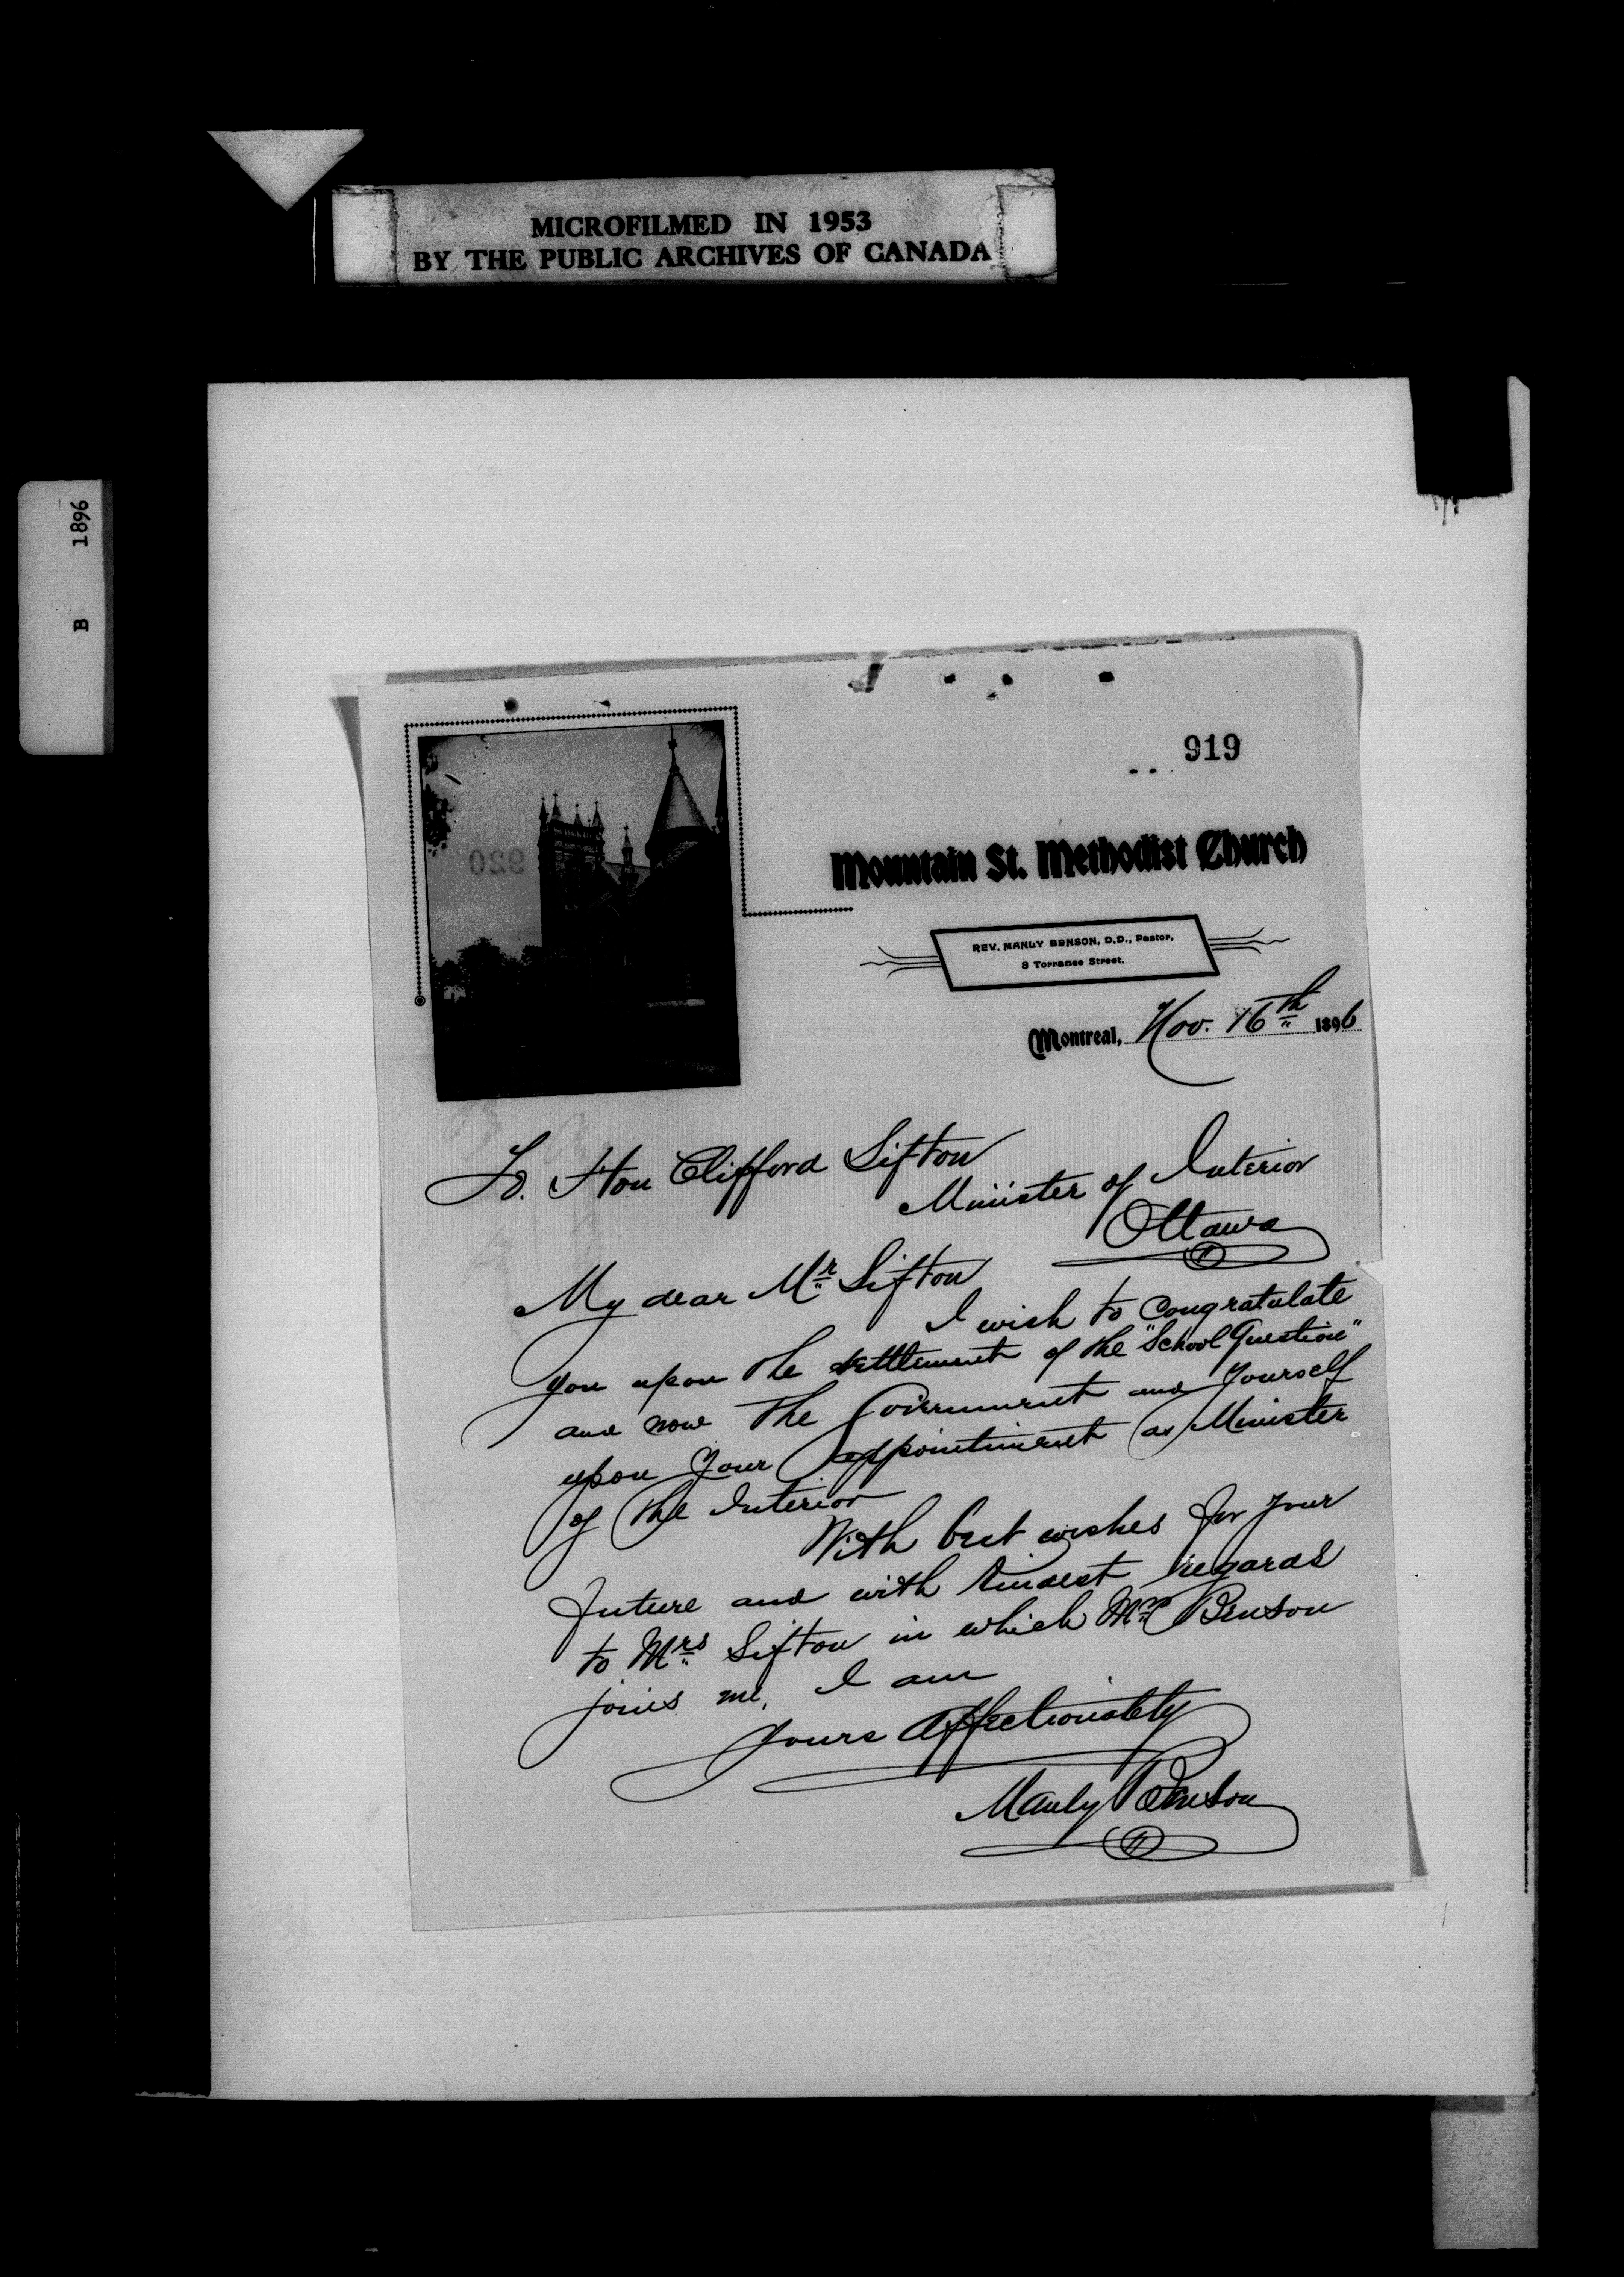 MICROFILMED IN 1953
BY THE PUBLIC ARCHIVES OF CANADA
B 1896
919
920
Mountain St. Methodist Church
REV. MANLY BENSON, D.D., Pastor,
8 Torrance Street.
Montreal, Nov. 16th 1896
To. Hon Clifford Sifton
Minister of Interior
Ottawa
My dear Mr Sifton
I wish to Congratulate
you upon the settlement of the "School Question"
and now the Government and yourself
upon your appointment as Minister
of the Interior
With best wishes for your
future and with kindest regards
to Mrs Sifton in which Mrs Benson
joins me, I am
yours affectionately
Manly Benson